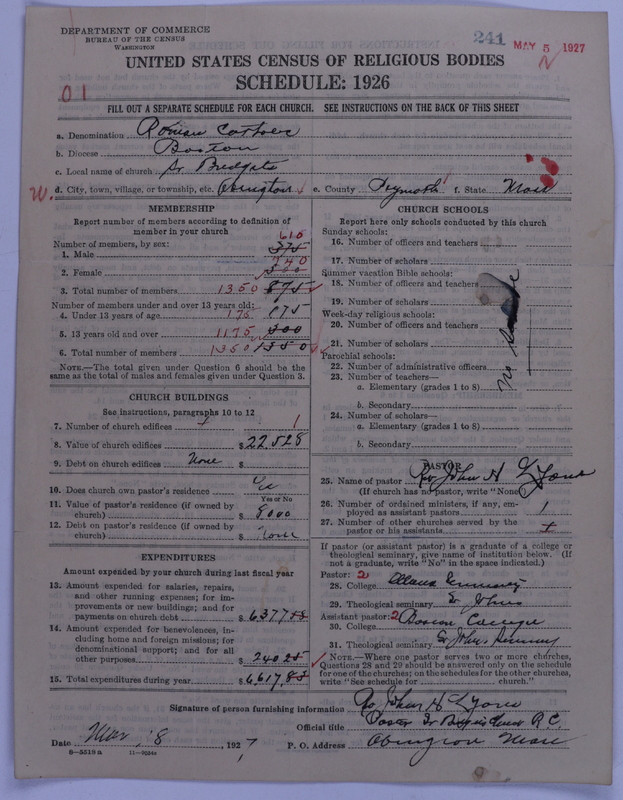 DEPARTMENT OF COMMERCE
BUREAU OF THE CENSUS
WASHINGTON
241
MAY 5 1927
UNITED STATES CENSUS OF RELIGIOUS BODIES
SCHEDULE: 1926
01
FILL OUT A SEPARATE SCHEDULE FOR EACH CHURCH. SEE INSTRUCTIONS ON THE BACK OF THIS SHEET
a. Denomination Roman Catholic
b. Diocese Boston
c. Local name of church St. Bridgets
W. d. City, town, village, or township, etc. Abington e. County Plymouth f. State Mass
MEMBERSHIP
Report number of members according to definition of
member in your church
Number of members, by sex:
610
1. Male 375
740
2. Female 500
3. Total number of members 1350 875
Number of members under and over 13 years old:
4. Under 13 years of age 175 175
5. 13 years old and over 1175 300
6. Total number of members 1350 1350
NOTE.—The total given under Question 6 should be
same as the total of males and females given under Question 3.
CHURCH BUILDINGS
See instructions, paragraphs 10 to 12
7. Number of church edifices 1 1
8. Value of church edifices $22,528
9. Debt on church edifices None $
10. Does church own pastor's residence Yes
Yes or No
11. Value of pastor's residence (if owned by
church) $8000
12. Debt on pastor's residence (if owned by
church) $None
EXPENDITURES
Amount expended by your church during last fiscal year
13. Amount expended for salaries, repairs,
and other running expenses; for im-
provements or new buildings; and for
payments on church debt $6377
14. Amount expended for benevolences, in-
cluding home and foreign missions; for
denominational support; and for all
other purposes $240
15. Total expenditures during year $6617
CHURCH SCHOOLS
Report here only schools conducted by this church
Sunday schools:
16. Number of officers and teachers
17. Number of scholars
Summer vacation Bible schools:
18. Number of officers and teachers
19. Number of scholars
Week-day religious schools:
20. Number of officers and teachers
21. Number of scholars
Parochial schools:
22. Number of administrative officers
23. Number of teachers—
a. Elementary (grades 1 to 8)
b. Secondary
24. Number of scholars—
a. Elementary (grades 1 to 8)
b. Secondary
PASTOR
25. Name of pastor Rev John H Lyons
(If church has no pastor, write "None")
26. Number of ordained ministers, if any, em-
ployed as assistant pastors 1
27. Number of other churches served by the
pastor or his assistants
If pastor (or assistant pastor) is a graduate of a college or
theological seminary, give name of institution below. (If
not a graduate, write "No" in the space indicated.)
Pastor: 2
28. College Seminary
29. Theological seminary St Johns
Assistant pastor: 2
30. College Boston College
31. Theological seminary St Johns Seminary
NOTE.—Where one pastor serves two or more churches,
Questions 28 and 29 should be answered only on the schedule
for one of the churches; on the schedules for the other churches,
write "See schedule for church."
Signature of person furnishing information Rev John H Lyons
Official title Pastor St Bridgets R.C.
Date Mar 8, 1927 P. O. Address Abington Mass
8—5519a 11—9924a